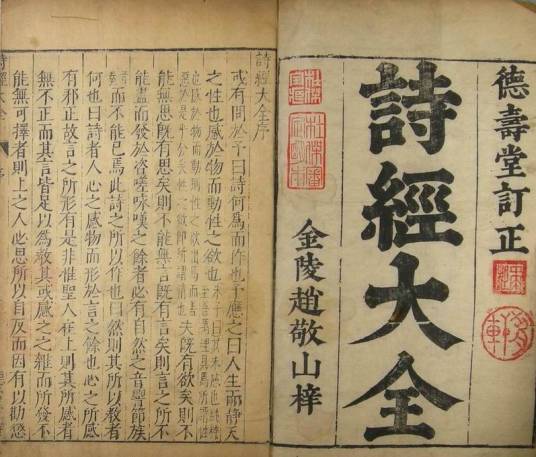 德壽堂訂正
詩經大全
金陵趙敬山梓
詩經大全序
或有問於予曰詩何為而作也予應之曰人生而靜天
之性也感於物而動性之欲也朱子曰其未感也純粹至善萬理具焉所謂性
也感於物而動則性之欲出焉而善惡於是乎分矣性之欲即所謂情也夫既有欲矣則不
能無思既有思矣則不能無言既有言矣則言之所不
能盡而發於咨嗟咏嘆之餘者必有自然之音響節族
而不能已焉此詩之所以作也曰然則其所以教者
何也曰詩者人心之感物而形於言之餘也心之所感
有邪正故言之所形有是非惟聖人在上則其所感者
無不正而其言皆足以為教其或感之之雜而所發不
能無可擇者則上之人必思所以自反而因有以勸懲
詩經大全
序